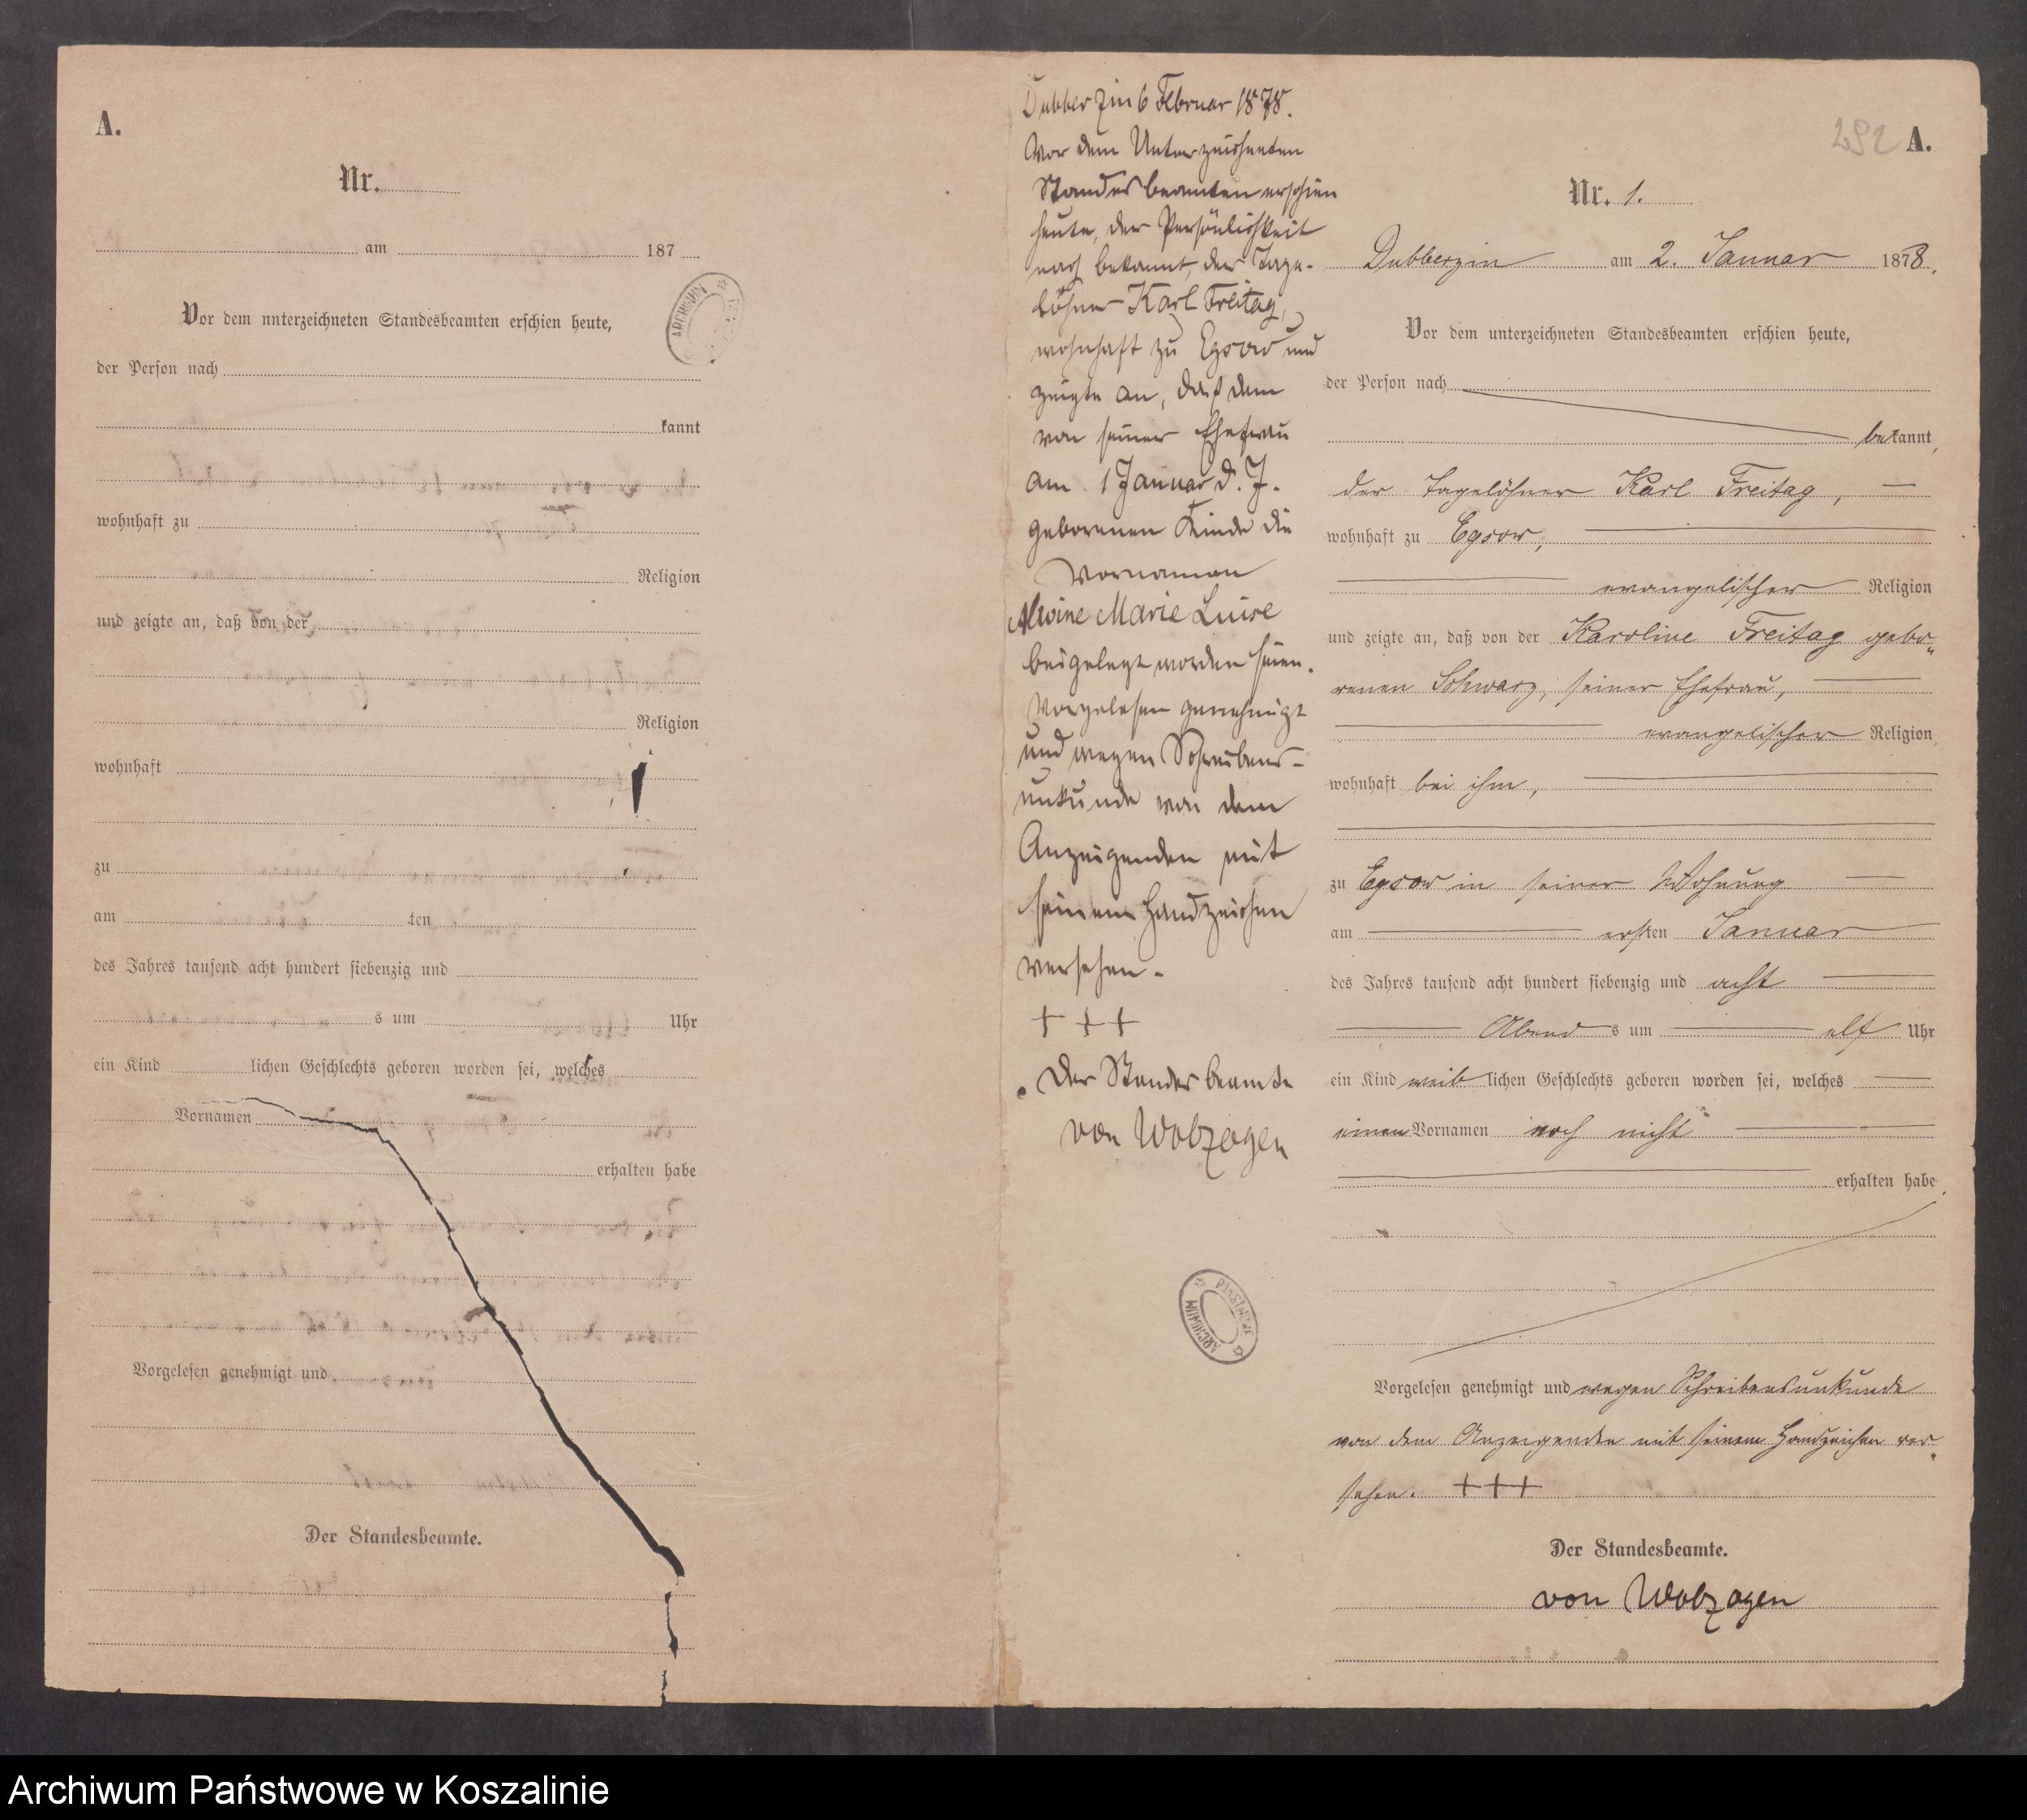 A.
Nr.
am 187
Vor dem unterzeichneten Standesbeamten erschien heute,
der Person nach
kannt
wohnhaft zu
Religion
und zeigte an, daß von der
Religion
wohnhaft
zu
am ten
des Jahres tausend acht hundert siebenzig und
s um Uhr
ein Kind lichen Geschlechts geboren worden sei, welches
Vornamen
erhalten habe
Vorgelesen genehmigt und
Der Standesbeamte.
ARCHIWUM
Dubberzin 6 Februar 1878.
Vor dem Unterzeichneten
Standesbeamten erschien
heute, der Persönlichkeit
nach bekannt, der Tage-
löhner Karl Freitag,
wohnhaft zu Egsow und
zeigte an, daß dem
von seiner Ehefrau
am 1 Januar d. J.
geborenen Kinde die
Vornamen
Alwine Marie Luise
beigelegt worden seien.
Vorgelesen genehmigt
und wegen Schreibens-
unkunde von dem
Anzeigenden mit
seinem Handzeichen
versehen.
+++
Der Standesbeamte
von Wolzogen
ARCHIWUM PAŃSTWOWE
292 A.
Nr. 1.
Dubberzin am 2. Januar 1878.
Vor dem unterzeichneten Standesbeamten erschien heute,
der Person nach
bekannt,
der Tagelöhner Karl Freitag,
wohnhaft zu Egsow,
evangelischer Religion
und zeigte an, daß von der Karoline Freitag gebo-
renen Schwarz, seiner Ehefrau,
evangelischer Religion,
wohnhaft bei ihm,
zu Egsow in seiner Wohnung
am ersten Januar
des Jahres tausend acht hundert siebenzig und acht
Abends um elf Uhr
ein Kind weiblichen Geschlechts geboren worden sei, welches
einen Vornamen noch nicht
erhalten habe.
Vorgelesen genehmigt und wegen Schreibensunkunde
von dem Anzeigenden mit seinem Handzeichen ver-
sehen. +++
Der Standesbeamte.
von Wolzogen
Archiwum Państwowe w Koszalinie